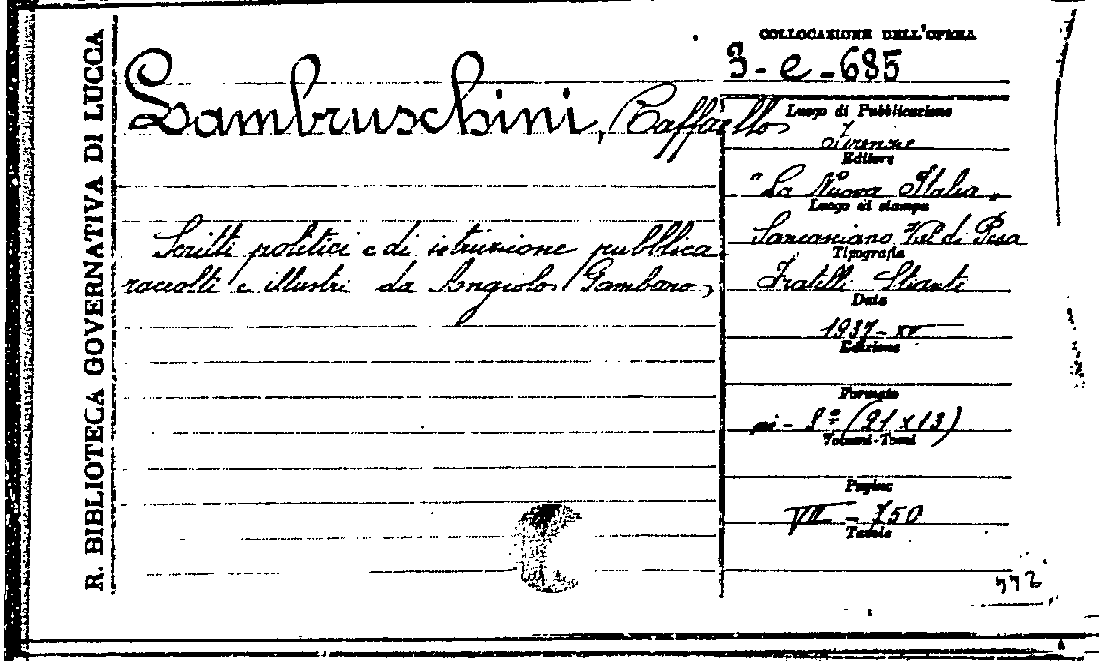 R. BIBLIOTECA GOVERNATIVA DI LUCCA
Lambruschini, Raffaello
Scritti politici e di istruzione pubblica
raccolti e illustri da Angiolo Gambaro,
COLLOCAZIONE DELL'OPERA
3-e-685
Luogo di Pubblicazione
Firenze
Editore
"La Nuova Italia"
Luogo di stampa
Sancasciano Val di Pesa
Tipografia
Fratelli Stianti
Data
1937-XV
Edizione
Formato
in-8º (21x13)
Volumi-Tomi
Pagine
VII - 750
Tavole